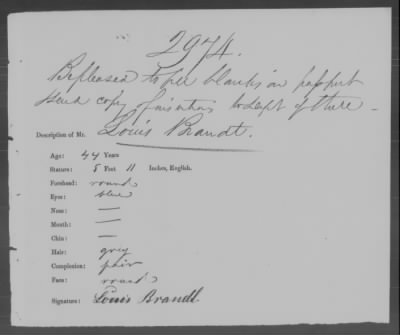 2974.
Be pleased to fill blanks in passport
send copy of to Dept of State -
Description of Mr. Louis Brandt.
Age: 44 Years
Stature: 5 Feet 11 Inches, English.
Forehead: round
Eyes: blue
Nose: —
Mouth: —
Chin: —
Hair: grey
Complexion: fair
Face: round
Signature: Louis Brandt.